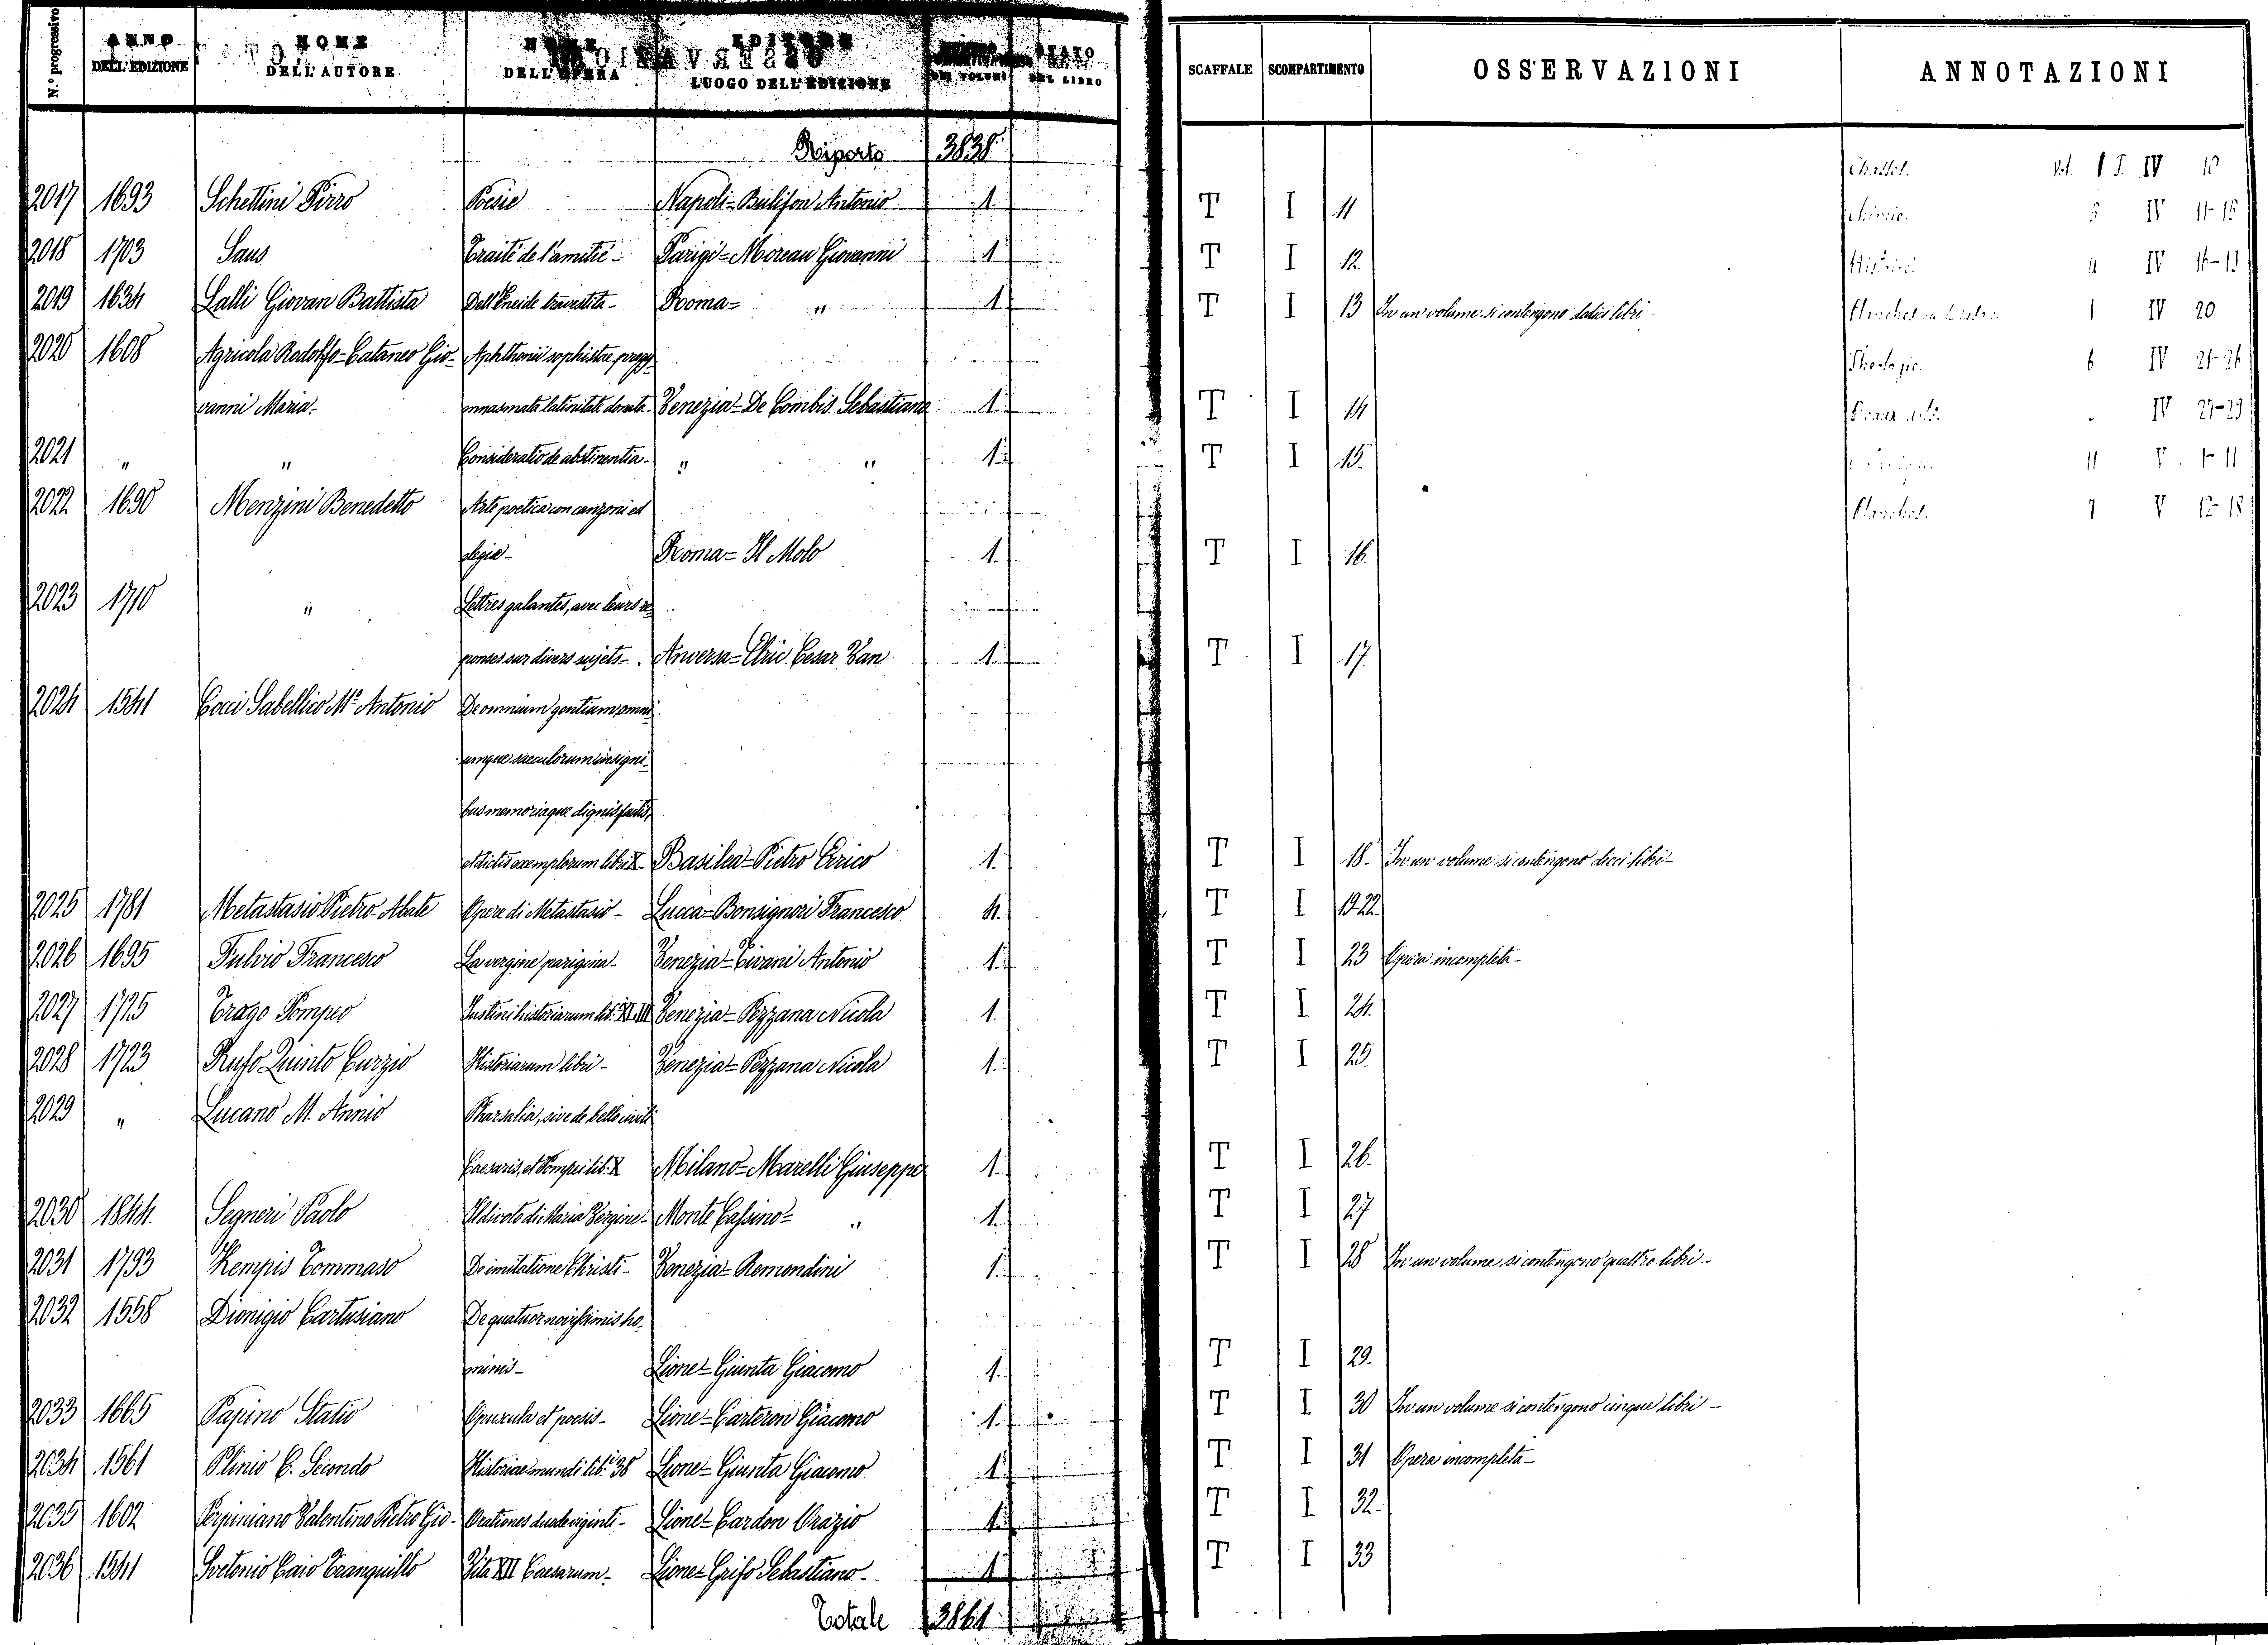 N.º progressivo ANNO DELL'EDIZIONE NOME DELL'AUTORE DELL'OPERA LUOGO DELL'EDIZIONE DEL LIBRO SCAFFALE SCOMPARTIMENTO OSSERVAZIONI ANNOTAZIONI
Riporto 3838
IV
2017 1693 Schettini Pirro Poesie Napoli = Bulifon Antonio 1. T I 11 5 IV 11-15
2018 1703 Saus Traité de l'amitié - Parigi = Moreau Giovanni 1 T I 12. 4 IV
2019 1634 Lalli Giovan Battista Dell'Eneide travestita - Roma = " 1 T I 13 In un volume si contengono dodici libri - 1 IV 20
2020 1608 Agricola Rodolfo = Cataneo Gio- Aphthonii sophistae progy- 6 IV 21-26
vanni Maria - mnasmata latinitate donata - Venezia = De Combis Sebastiano 1. T I 14 IV 27-29
2021 " " Consideratio de abstinentia - " " 1. T I 15. 11 V 1-11
2022 1690 Menzini Benedetto Arte poetica con canzoni ed 7 V 12-18
elegie - Roma = Il Molo 1. T I 16.
2023 1710 " Lettres galantes, avec leurs re-
ponses sur divers sujets - Anversa = Elric Cesar Van 1. T I 17.
2024 1541 Cocci Sabellico M.º Antonio De omnium gentium, omni
umque saeculorum insigni-
bus memoriaque dignis factis,
et dictis exemplorum libri X - Basilea = Pietro Errico 1. T I 18. In un volume si contengono dieci libri -
2025 1781 Metastasio Pietro Abate Opere di Metastasio - Lucca = Bonsignori Francesco 4. T I 19-22.
2026 1695 Fulvio Francesco La vergine parigina - Venezia = Tivani Antonio 1. T I 23 Opera incompleta -
2027 1725 Trogo Pompeo Justini historiarum lib. Venezia = Pezzana Nicola 1. T I 24.
2028 1723 Rufo Quinto Curzio Historiarum libri - Venezia = Pezzana Nicola 1. T I 25.
2029 " Lucano M. Annio Pharsalia, sive de bello civili
Caesaris, et Pompei lib. X Milano = Marelli Giuseppe 1. T I 26.
2030 1844. Segneri Paolo Il divoto di Maria Vergine - Monte Cassino = " 1. T I 27
2031 1793 Kempis Tommaso De imitatione Christi - Venezia = Remondini 1. T I 28 In un volume si contengono quattro libri -
2032 1558 Dionigio Cartusiano De quatuor novissimis ho-
minis - Lione = Giunta Giacomo 1. T I 29.
2033 1665 Papino Statio Opuscula et poesis - Lione = Carteron Giacomo 1. T I 30 In un volume si contengono cinque libri -
2034 1561 Plinio C. Secondo Historiae mundi lib. 38 Lione = Giunta Giacomo 1. T I 31 Opera incompleta -
2035 1602 Perpiniano Valentino Pietro Gio- Orationes duodeviginti - Lione = Cardon Orazio 1. T I 32.
2036 1541 Svetonio Caio Tranquillo Vita XII Caesarum - Lione = Grifo Sebastiano - 1 T I 33
Totale 3861